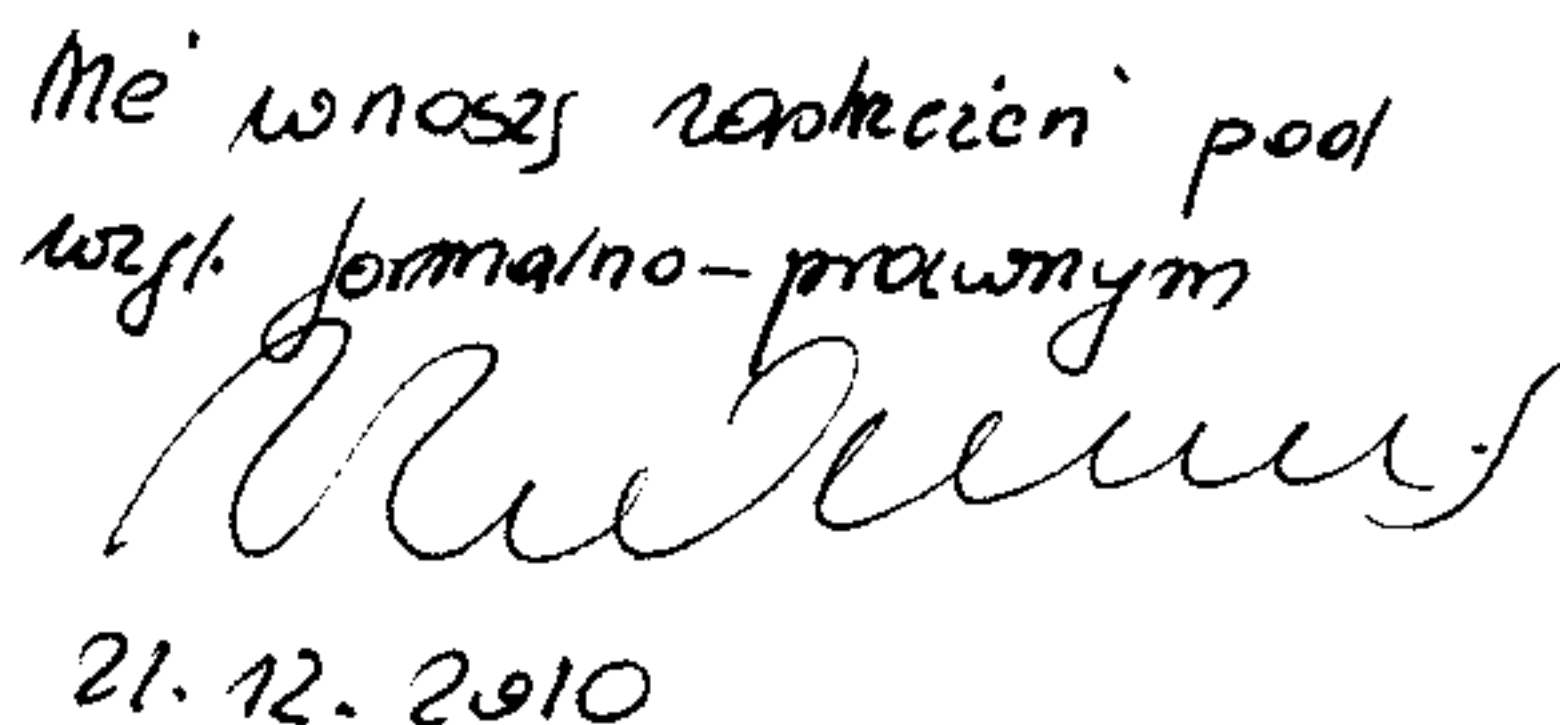 Nie wnoszę zastrzeżeń pod
wzgl. formalno-prawnym
21.12.2010